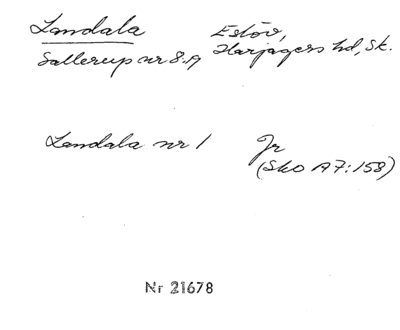 Landala Eslöv,
Sallerup nr 8.A Harjagers hd, Sk.
Landala nr 1 Jr
(Sko A7:158)
Nr 21678